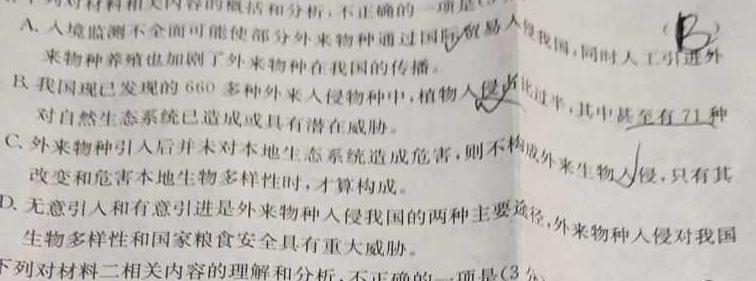 下列对材料相关内容的概括和分析,不正确的一项是(3
(B)
A. 入境监测不全面可能使部分外来物种通过国际贸易入侵我国,同时人工引进外
来物种养殖也加剧了外来物种在我国的传播。
B. 我国现已发现的 660 多种外来入侵物种中,植物入侵占比过半,其中甚至有 71 种
对自然生态系统已造成或具有潜在威胁。
C. 外来物种引入后并未对本地生态系统造成危害,则不构成外来生物入侵,只有其
改变和危害本地生物多样性时,才算构成。
D. 无意引入和有意引进是外来物种入侵我国的两种主要途径,外来物种入侵对我国
生物多样性和国家粮食安全具有重大威胁。
下列对材料二相关内容的理解和分析,不正确的一项是(3分)